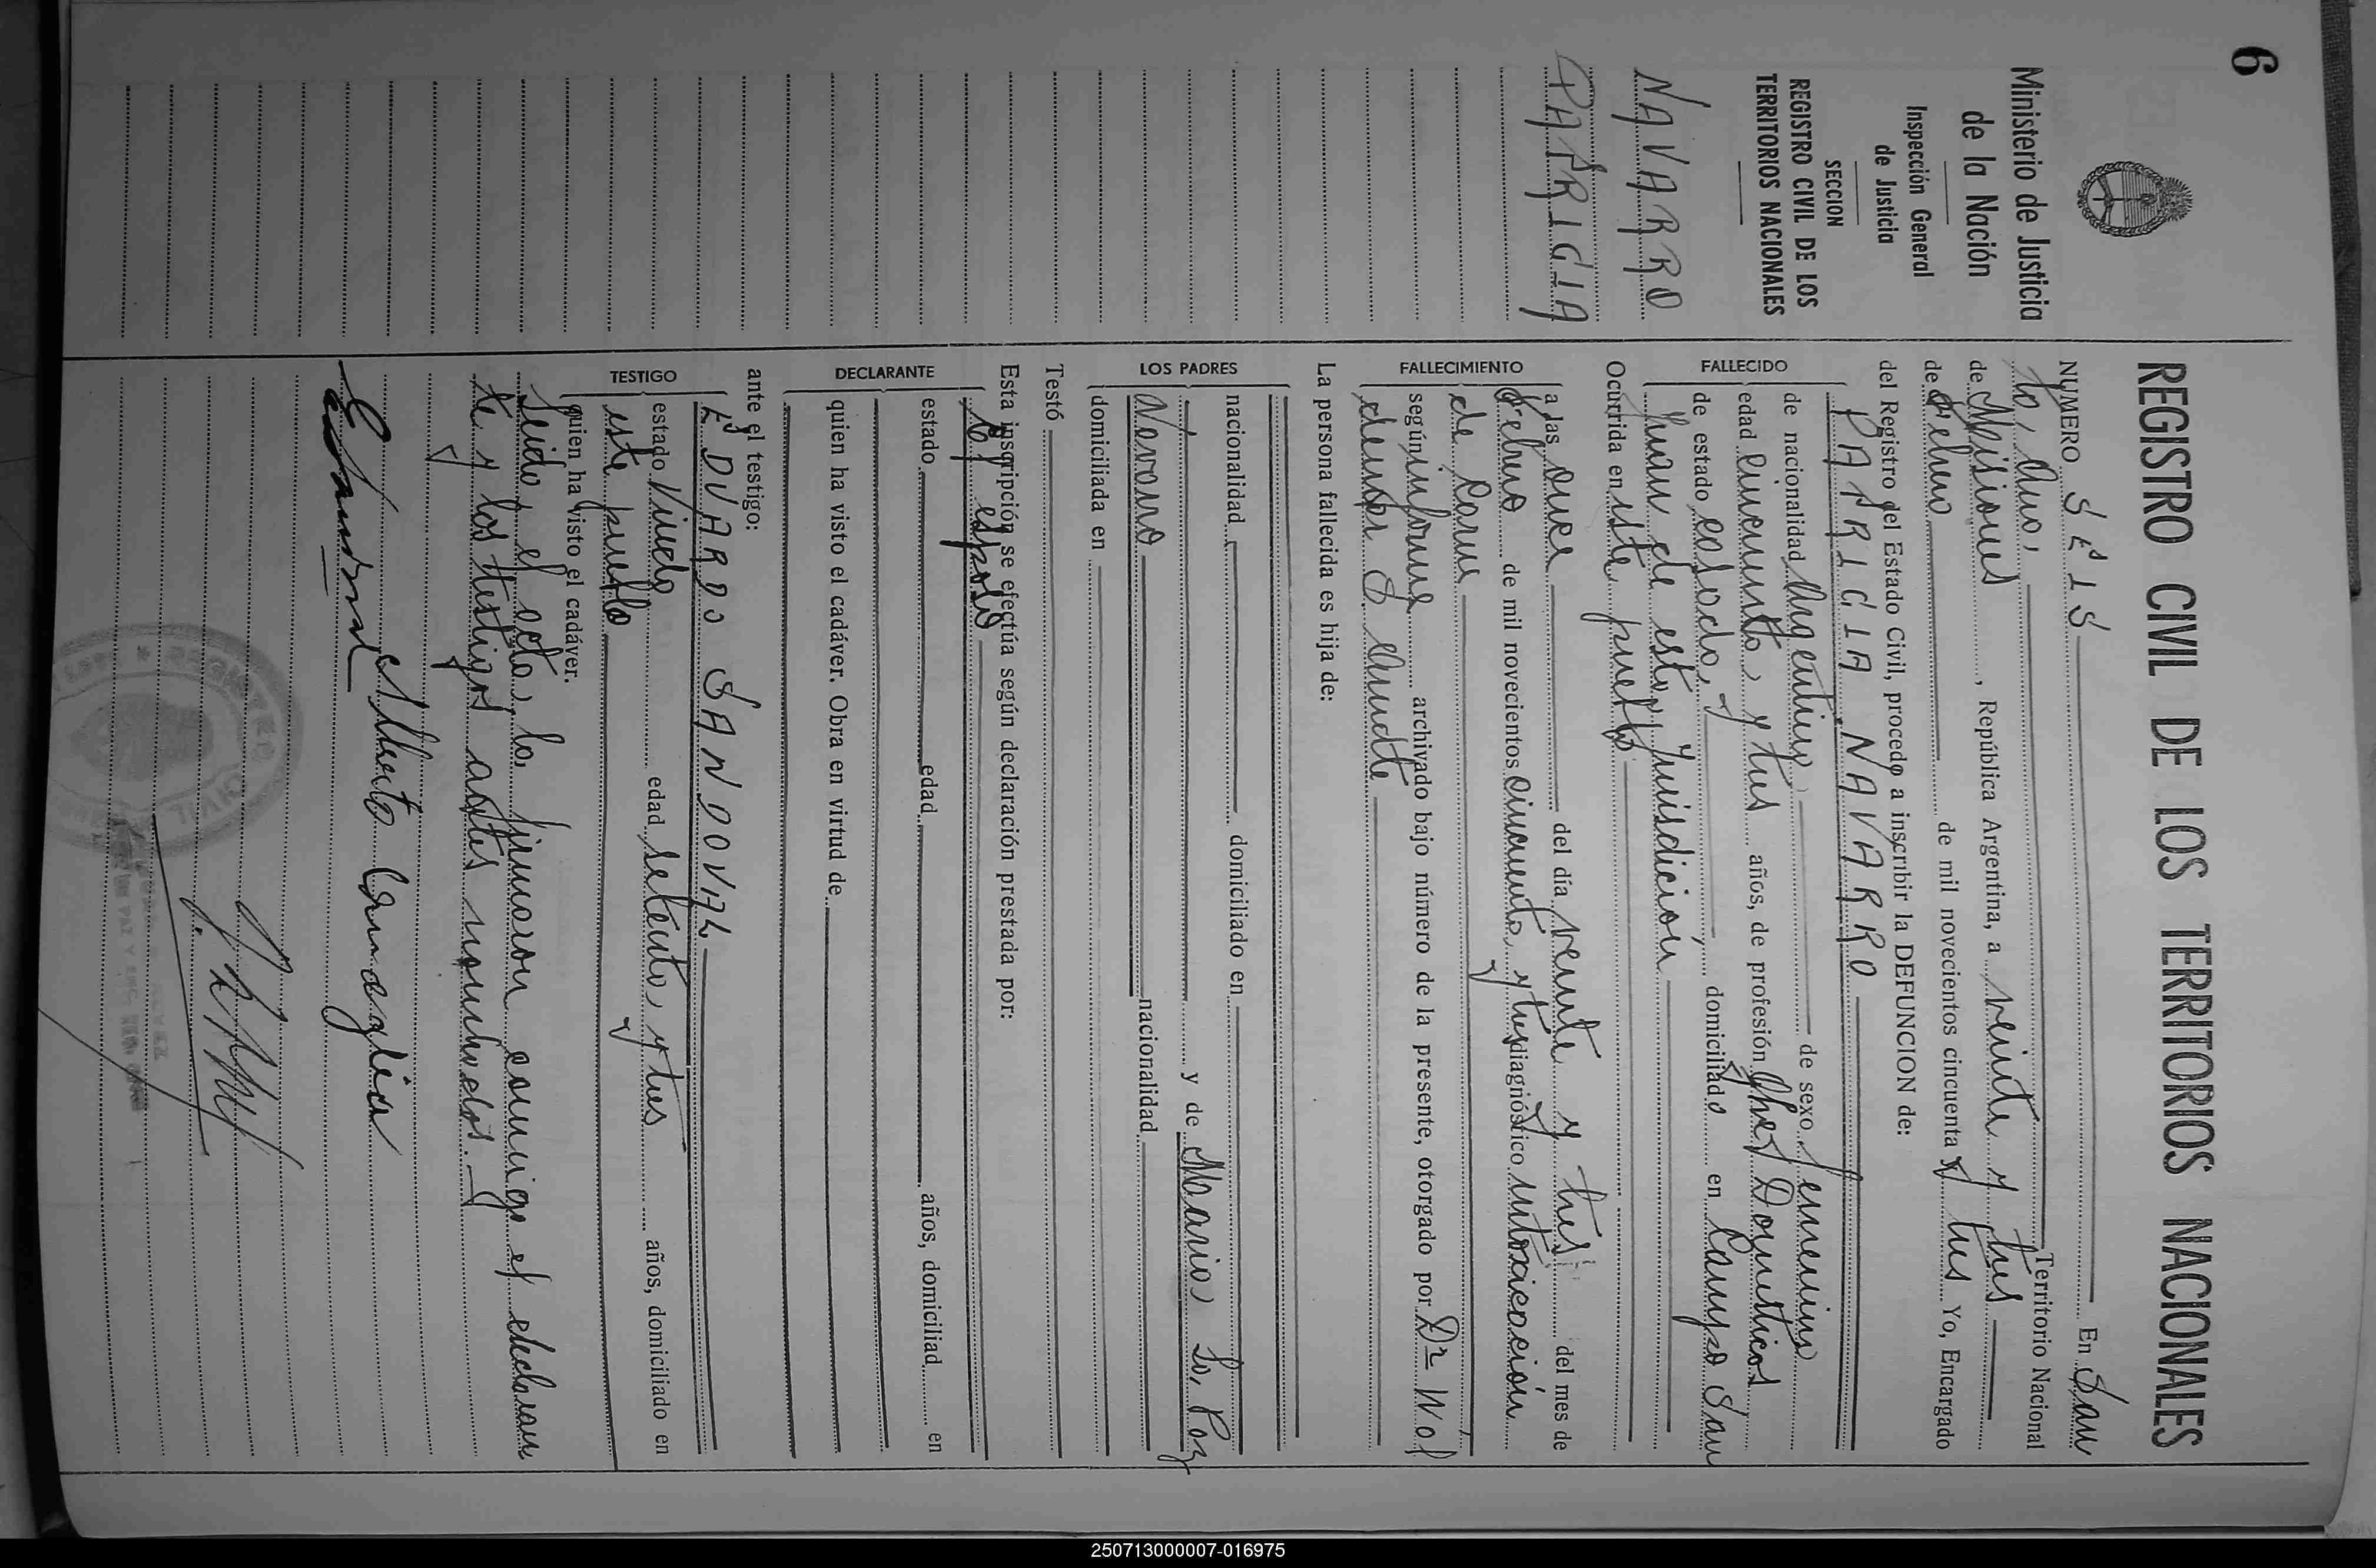 6
Ministerio de Justicia
de la Nación
Inspección General
de Justicia
SECCION
REGISTRO CIVIL DE LOS
TERRITORIOS NACIONALES
NAVARRO
PATRICIA
REGISTRO CIVIL DE LOS TERRITORIOS NACIONALES
NUMERO SEIS En San
ta Ana, Territorio Nacional
de Misiones, República Argentina, a veinte y tres
de Febrero de mil novecientos cincuenta y tres Yo, Encargado
del Registro del Estado Civil, procedo a inscribir la DEFUNCION de:
FALLECIDO
PATRICIA NAVARRO
de nacionalidad Argentina de sexo femenino
edad cincuenta y tres años, de profesión Qhes Domesticos
de estado casada, domiciliada en Campo San
Juan de esta Jurisdicción
Ocurrida en este pueblo
FALLECIMIENTO
a las once del día veinte y tres del mes de
Febrero de mil novecientos cincuenta y tres diagnóstico intoxicación
de carne
según informe archivado bajo número de la presente, otorgado por Dr Wol
demar
La persona fallecida es hija de:
LOS PADRES
nacionalidad domiciliado en
y de Maria La Paz
Navarro nacionalidad
domiciliada en
Testó
Esta inscripción se efectúa según declaración prestada por:
DECLARANTE
el esposo
estado edad años, domiciliad en
quien ha visto el cadáver. Obra en virtud de
ante el testigo:
TESTIGO
EDUARDO SANDOVAL
estado Viudo edad setenta y tres años, domiciliado en
este pueblo
quien ha visto el cadáver.
Leida el acta, la firmaron conmigo el declaran
te y los testigos antes nombrados.
Alberto
REGISTRO CIVIL
250713000007-016975